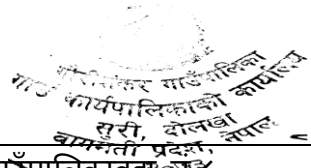 गौरीशंकर गाउँपालिका
गाउँ कार्यपालिकाको कार्यालय
सुरी, दोलखा
बागमती प्रदेश, नेपाल